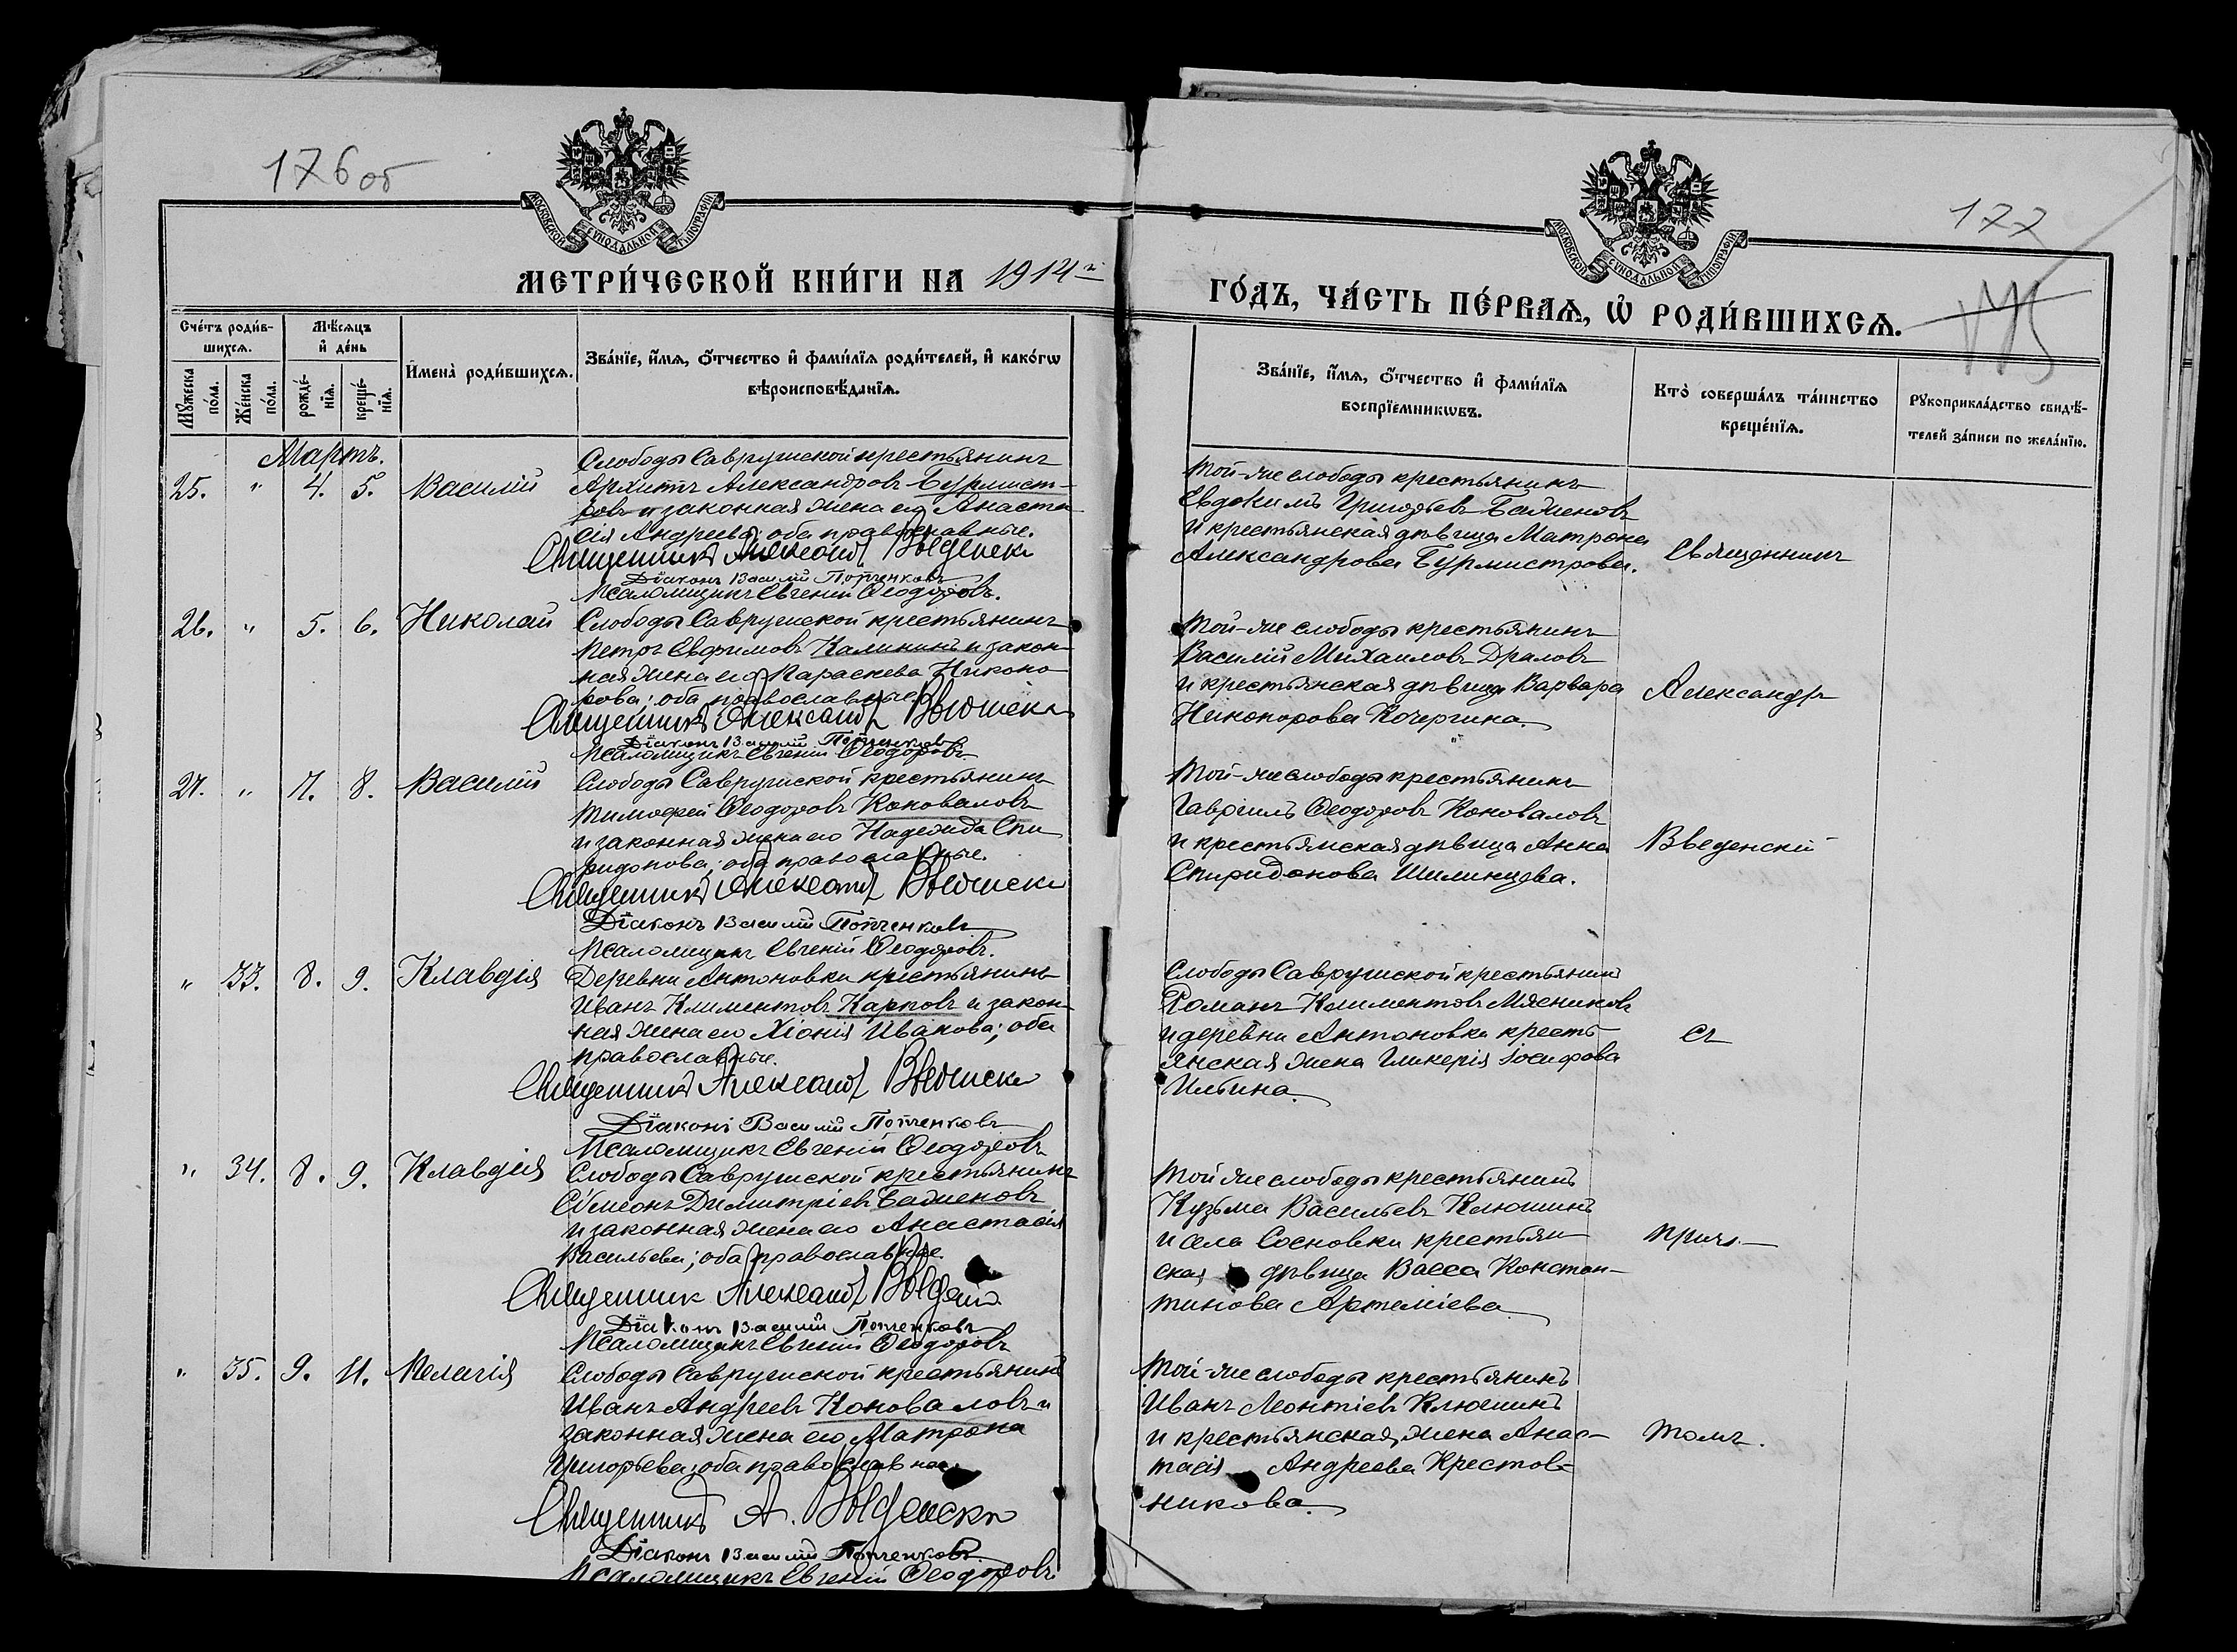 176 об
177
175
МОСКОВСКОЙ СѴНОДАЛЬНОЙ ТИПОГРАФІИ
МОСКОВСКОЙ СѴНОДАЛЬНОЙ ТИПОГРАФІИ
МЕТРИ́ЧЕСКОЙ КНИ́ГИ НА 1914 г
ГО́ДЪ, ЧА́СТЬ ПЕ́РВАѦ, Ѡ҆ РОДИ́ВШИХСѦ.
Сче́тъ роди́в-
шихсѧ.
Мѣ́сѧцъ
и҆ де́нь
И҆мена̀ роди́вшихсѧ.
Зва́нїе, и҆́мѧ, ѻ҆́тчество и҆ фами́лїѧ роди́телей, и҆ како́гѡ
вѣроисповѣ́данїѧ.
Мꙋ́жеска
по́ла.
Же́нска
по́ла.
рожде́-
нїѧ.
креще́-
нїѧ.
Зва́нїе, и҆́мѧ, ѻ҆́тчество и҆ фами́лїѧ
воспрїе́мникѡвъ.
Кто̀ соверша́лъ та́инство
креще́нїѧ.
Рꙋкоприкла́дство свидѣ́-
телей за́писи по жела́нїю.
Мартъ.
25. " 4. 5. Василій
Слободы Саврушской крестьянинъ
Архипъ Александровъ Бурмист-
ровъ и законная жена его Анаста
сія Андреева; оба православные.
Священникъ Александръ Введенскій
Діаконъ Василій Потченковъ
Псаломщикъ Евгеній Ѳеодоровъ.
Той-же слободы крестьянинъ
Евдокимъ Григорьевъ Баженовъ
и крестьянская дѣвица Матрона
Александрова Бурмистрова.
Священникъ
26. " 5. 6. Николай
Слободы Саврушской крестьянинъ
Петръ Евфимовъ Калининъ и закон-
ная жена его Параскева Никоно
рова; оба православные
Священникъ Александръ Введенскій
Діаконъ Василій Потченковъ
Псаломщикъ Евгеній Ѳеодоровъ
Той-же слободы крестьянинъ
Василій Михаиловъ Драловъ
и крестьянская дѣвица Варвара
Никонорова Кочергина.
Александръ
27. " 7. 8. Василій
Слободы Саврушской крестьянинъ
Тимофей Ѳеодоровъ Коноваловъ
и законная жена его Надежда Спи
ридонова; оба православные.
Священникъ Александръ Введенскій
Діаконъ Василій Потченковъ
Псаломщикъ Евгеній Ѳеодоровъ.
Той-же слободы крестьянинъ
Гавріилъ Ѳеодоровъ Коноваловъ
и крестьянская дѣвица Анна
Спиридонова Шилинцева.
Введенскій
" 33. 8. 9. Клавдія
Деревни Антоновки крестьянинъ
Иванъ Климентовъ Карповъ и закон-
ная жена его Хіонія Иванова; оба
православные.
Священникъ Александръ Введенскій
Діаконъ Василій Потченковъ
Псаломщикъ Евгеній Ѳеодоровъ
Слободы Саврушской крестьянинъ
Романъ Климентовъ Мясниковъ
и деревни Антоновки кресть
янская жена Гликерія Іосифова
Ильина.
съ
" 34. 8. 9. Клавдія
Слободы Саврушской крестьянинъ
Симеонъ Димитріевъ Баженовъ
и законная жена его Анастасія
Васильева; оба православные
Священникъ Александръ Введенскій
Діаконъ Василій Потченковъ
Псаломщикъ Евгеній Ѳеодоровъ
Той же слободы крестьянинъ
Кузьма Васильевъ Клюшинъ
и села Сосновки крестьян
ская дѣвица Васса Констан-
тинова Артеміева
прич.
" 35. 9. 11. Пелагія
Слободы Саврушской крестьянинъ
Иванъ Андреевъ Коноваловъ и
законная жена его Матрона
Григорьева; оба православные
Священникъ А. Введенскій
Діаконъ Василій Потченковъ
Псаломщикъ Евгеній Ѳеодоровъ
Той-же слободы крестьянинъ
Иванъ Леонтіевъ Клюшинъ
и крестьянская жена Анас-
тасія Андреева Крестов-
никова.
томъ.